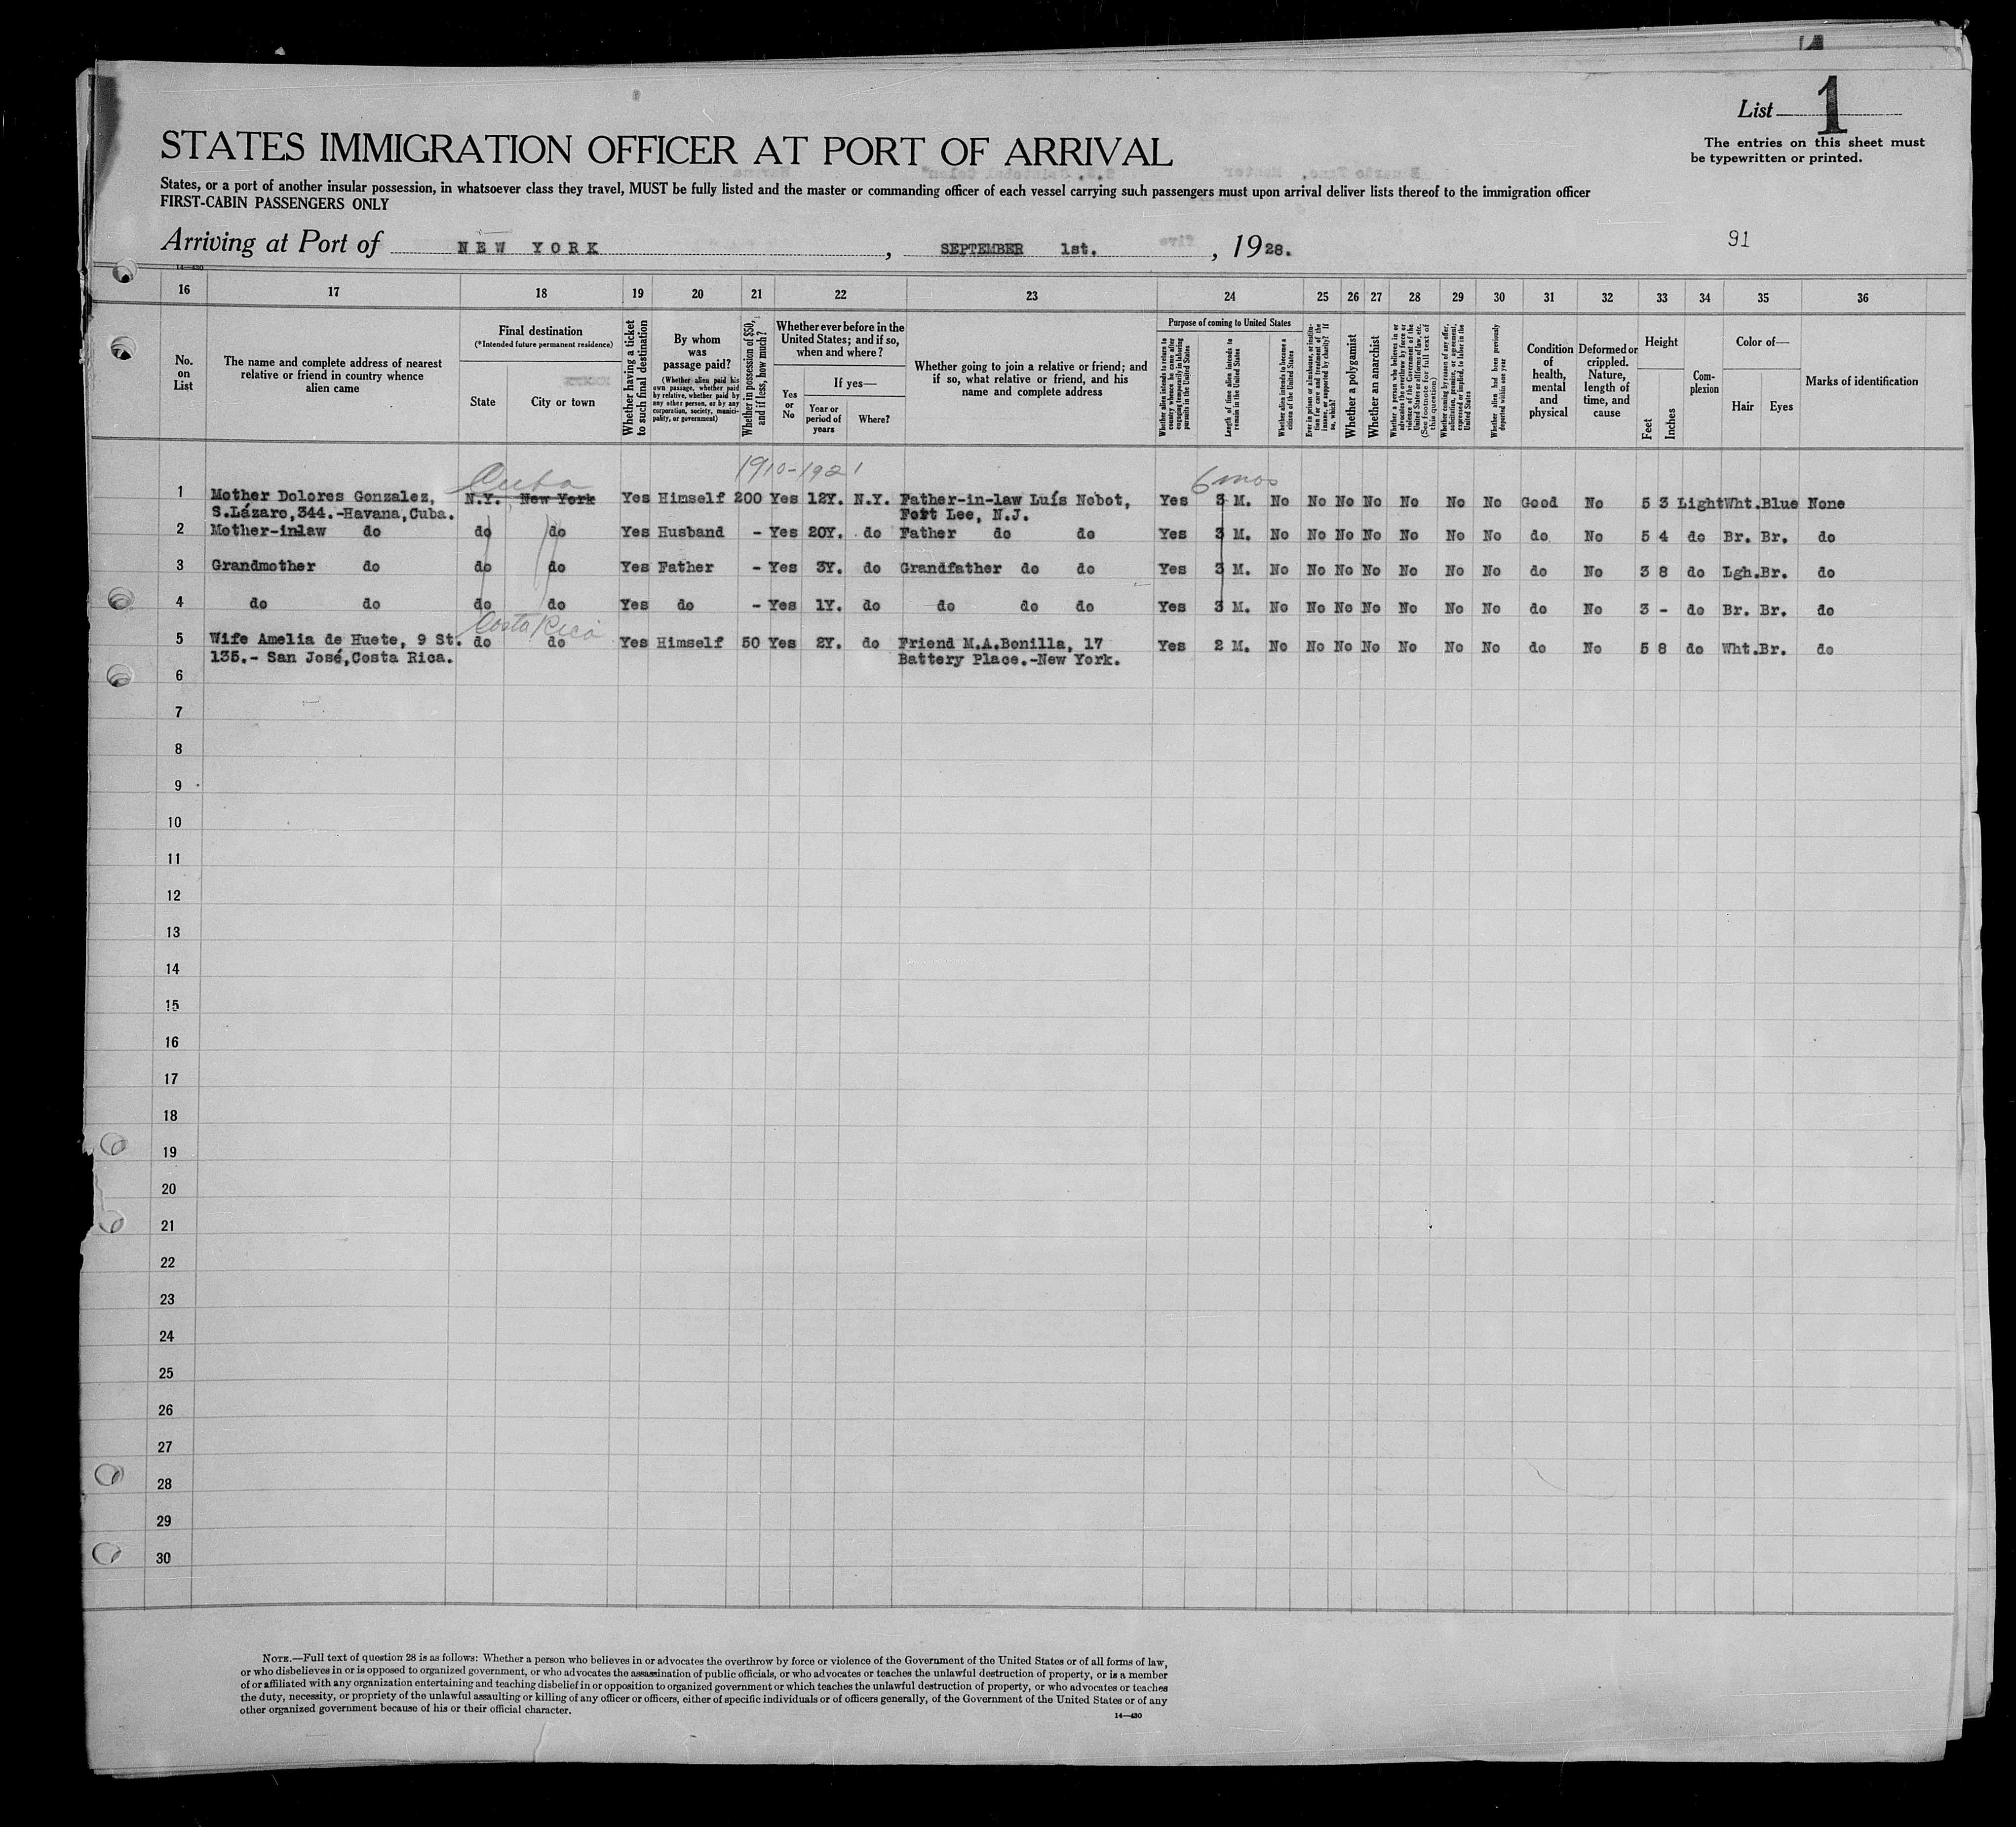 List 1
The entries on this sheet must
be typewritten or printed.
STATES IMMIGRATION OFFICER AT PORT OF ARRIVAL
States, or a port of another insular possession, in whatsoever class they travel, MUST be fully listed and the master or commanding officer of each vessel carrying such passengers must upon arrival deliver lists thereof to the immigration officer
FIRST-CABIN PASSENGERS ONLY
Arriving at Port of NEW YORK, SEPTEMBER 1st., 1928.
91
14—430
16 17 18 19 20 21 22 23 24 25 26 27 28 29 30 31 32 33 34 35 36
No. on List
The name and complete address of nearest relative or friend in country whence alien came
Final destination
(*Intended future permanent residence)
State
City or town
Whether having a ticket to such final destination
By whom was passage paid?
(Whether alien paid his own passage, whether paid by relative, whether paid by any other person, or by any corporation, society, municipality, or government)
Whether in possession of $50, and if less, how much?
Whether ever before in the United States; and if so, when and where?
Yes or No
If yes—
Year or period of years
Where?
Whether going to join a relative or friend; and if so, what relative or friend, and his name and complete address
Purpose of coming to United States
Whether alien intends to return to country whence he came after engaging temporarily in laboring pursuits in the United States
Length of time alien intends to remain in the United States
Whether alien intends to become a citizen of the United States
Ever in prison or almshouse, or institution for care and treatment of the insane, or supported by charity? If so, which?
Whether a polygamist
Whether an anarchist
Whether a person who believes in or advocates the overthrow by force or violence of the Government of the United States or all forms of law, etc. (See footnote for full text of this question)
Whether coming by reason of any offer, solicitation, promise, or agreement, expressed or implied, to labor in the United States
Whether alien had been previously deported within one year
Condition of health, mental and physical
Deformed or crippled. Nature, length of time, and cause
Height
Feet
Inches
Complexion
Color of—
Hair
Eyes
Marks of identification
Cuba 1910-1921 6 mos
1 Mother Dolores Gonzalez, N.Y. New York Yes Himself 200 Yes 12Y. N.Y. Father-in-law Luís Nobot, Yes 3 M. No No No No No No No Good No 5 3 Light Wht. Blue None
S.Lázaro,344.-Havana,Cuba. Fort Lee, N.J.
2 Mother-inlaw do do do Yes Husband - Yes 20Y. do Father do do Yes 3 M. No No No No No No No do No 5 4 do Br. Br. do
3 Grandmother do do do Yes Father - Yes 3Y. do Grandfather do do Yes 3 M. No No No No No No No do No 3 8 do Lgh. Br. do
4 do do do do Yes do - Yes 1Y. do do do do Yes 3 M. No No No No No No No do No 3 - do Br. Br. do
Costa Rica
5 Wife Amelia de Huete, 9 St. do do Yes Himself 50 Yes 2Y. do Friend M.A.Bonilla, 17 Yes 2 M. No No No No No No No do No 5 8 do Wht. Br. do
135.- San José,Costa Rica. Battery Place.-New York.
6
7
8
9
10
11
12
13
14
15
16
17
18
19
20
21
22
23
24
25
26
27
28
29
30
NOTE.—Full text of question 28 is as follows: Whether a person who believes in or advocates the overthrow by force or violence of the Government of the United States or of all forms of law,
or who disbelieves in or is opposed to organized government, or who advocates the assassination of public officials, or who advocates or teaches the unlawful destruction of property, or is a member
of or affiliated with any organization entertaining and teaching disbelief in or opposition to organized government or which teaches the unlawful destruction of property, or who advocates or teaches
the duty, necessity, or propriety of the unlawful assaulting or killing of any officer or officers, either of specific individuals or of officers generally, of the Government of the United States or of any
other organized government because of his or their official character.
14—430